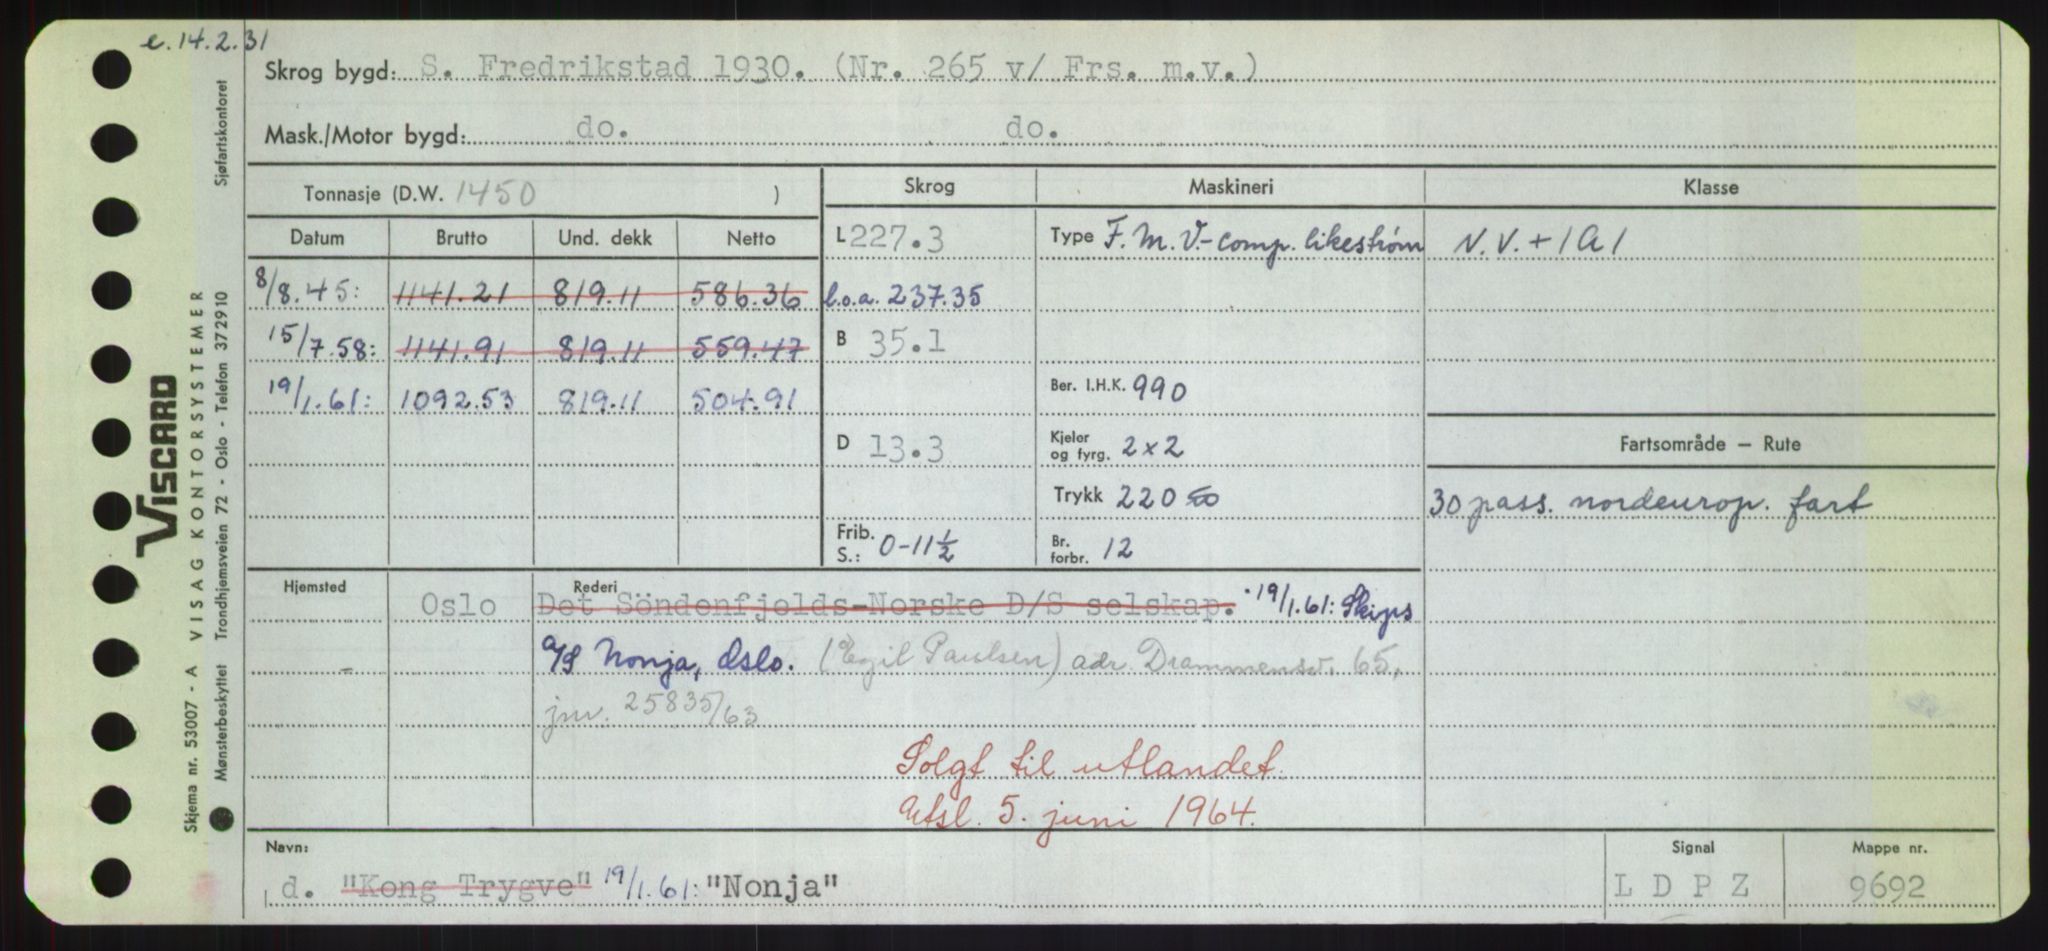 e. 14.2.31
Skrog bygd: S. Fredrikstad 1930. (Nr. 265 v/ Frs. m.v.)
Mask./Motor bygd: do. do.
Tonnasje (D.W. 1450 )
Datum Brutto Und. dekk Netto
8/8.45: 1141.21 819.11 586.36
15/7.58: 1141.91 819.11 559.47
19/1.61: 1092.53 819.11 504.91
Skrog
L 227.3
l.o.a. 237.35
B 35.1
D 13.3
Frib. S.: 0-11½
Maskineri
Type F.M.V.-comp. likestrøm
Ber. I.H.K. 990
Kjeler og fyrg. 2x2
Trykk 220
Br. forbr. 12
Klasse
N.V. + 1A1
Fartsområde — Rute
30 pass. nordeurop. fart
Hjemsted Rederi
Oslo Det Söndenfjelds-Norske D/S selskap. 19/1.61: Skips
A/S Nonja, Oslo. (Egil Paulsen) adr. Drammensv. 65,
jnr. 25835/63
Solgt til utlandet.
Utsl. 5. juni 1964.
Navn: Signal Mappe nr.
d. "Kong Trygve" 19/1.61: "Nonja" LDPZ 9692
VISCARD
Skjema nr. 53007 - A VISAG KONTORSYSTEMER
Mønsterbeskyttet Trondhjemsveien 72 - Oslo - Telefon 372910 Sjøfartskontoret